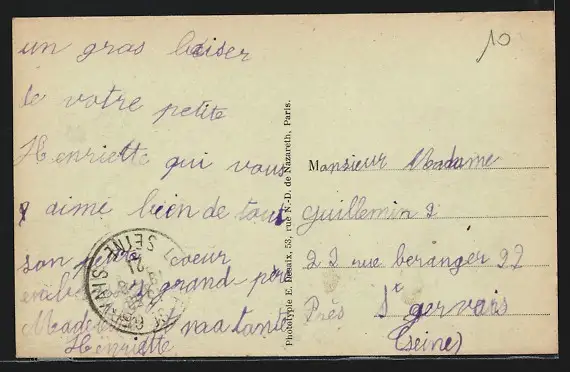 un gras baiser
de votre petite
Henriette qui vous
aime bien de tout
son petit coeur
grand père
Made et maa tante
Henriette
10
Phototypie E. Desaix, 53, rue N.-D. de Nazareth, Paris.
Monsieur Madame
Guillemin 2
22 rue beranger 22
Près St gervais
(seine)
SEINE